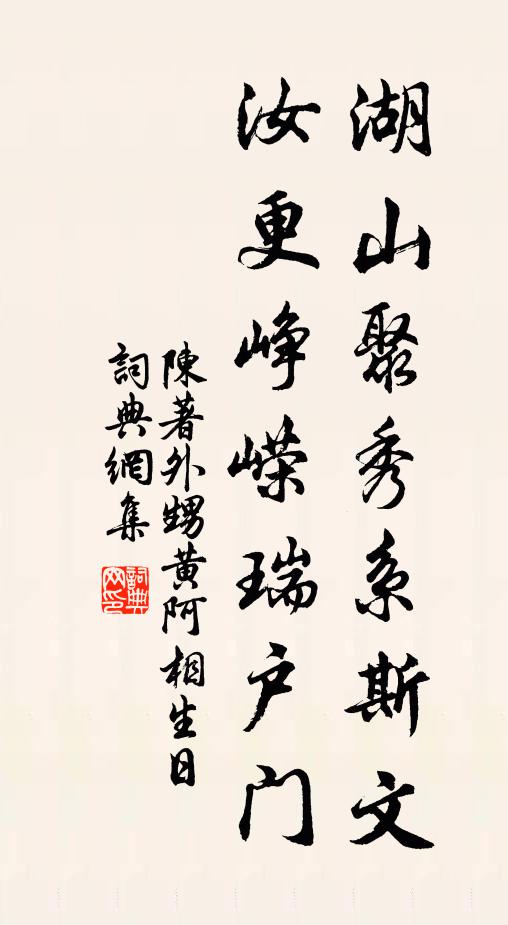 湖山聚秀系斯文
汝更峥嵘瑞户门
陳著外甥黄阿相生日
詞典網集
詞典网印